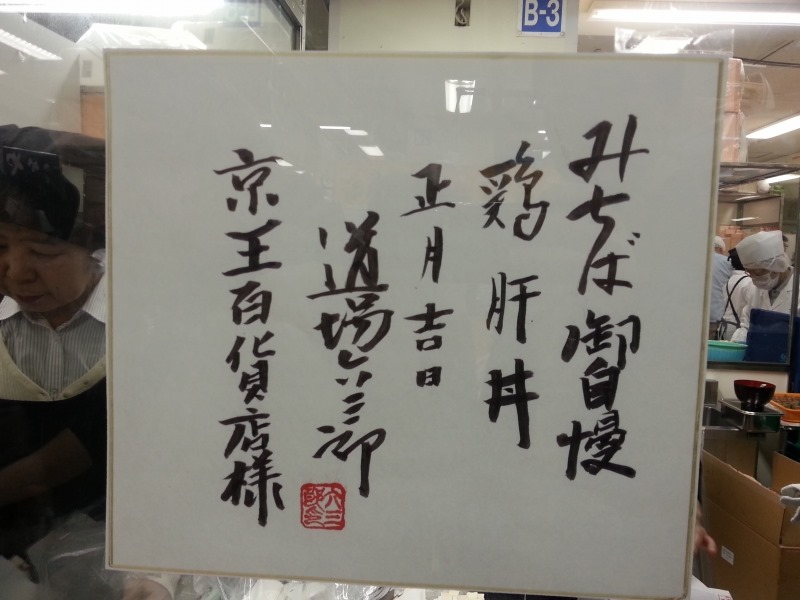 B-3
みちば御自慢
鶏肝丼
正月吉日
道場六三郎
京王百貨店様